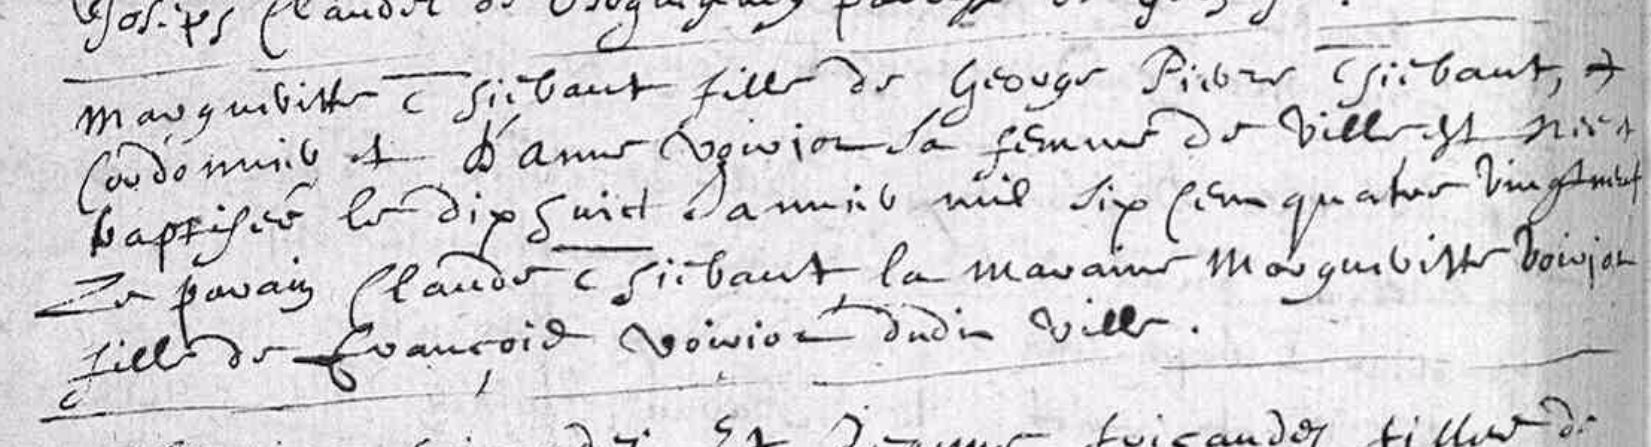 Joseph Claudel de
Margueritte Thiebaut fille de George Pierre Thiebaut, et
Cordonnier et d'anne Voiriot sa femme de Ville est née et
baptisée le dix huict Janvier mil six cent quatre vingt neuf
Le parain Claude Thiebaut la maraine Margueritte Voiriot
fille de François Voiriot dudit Ville.
Et Jeanne fille de